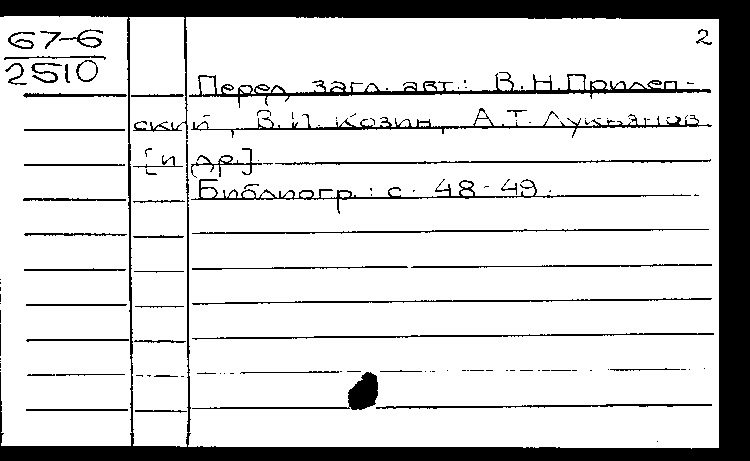 67-6
2510
2
Перед загл. авт.: В.Н.Прилеп-
ский, В.И. Козин, А.Т. Лукьянов
[и др.]
Библиогр.: с. 48-49.